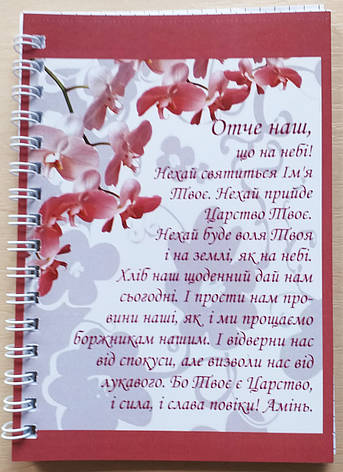 Отче наш,
що на небі!
Нехай святиться Ім'я
Твоє. Нехай прийде
Царство Твоє.
Нехай буде воля Твоя
і на землі, як на небі.
Хліб наш щоденний дай нам
сьогодні. І прости нам про-
вини наші, як і ми прощаємо
боржникам нашим. І відверни нас
від спокуси, але визволи нас від
лукавого. Бо Твоє є Царство,
і сила, і слава повіки! Амінь.